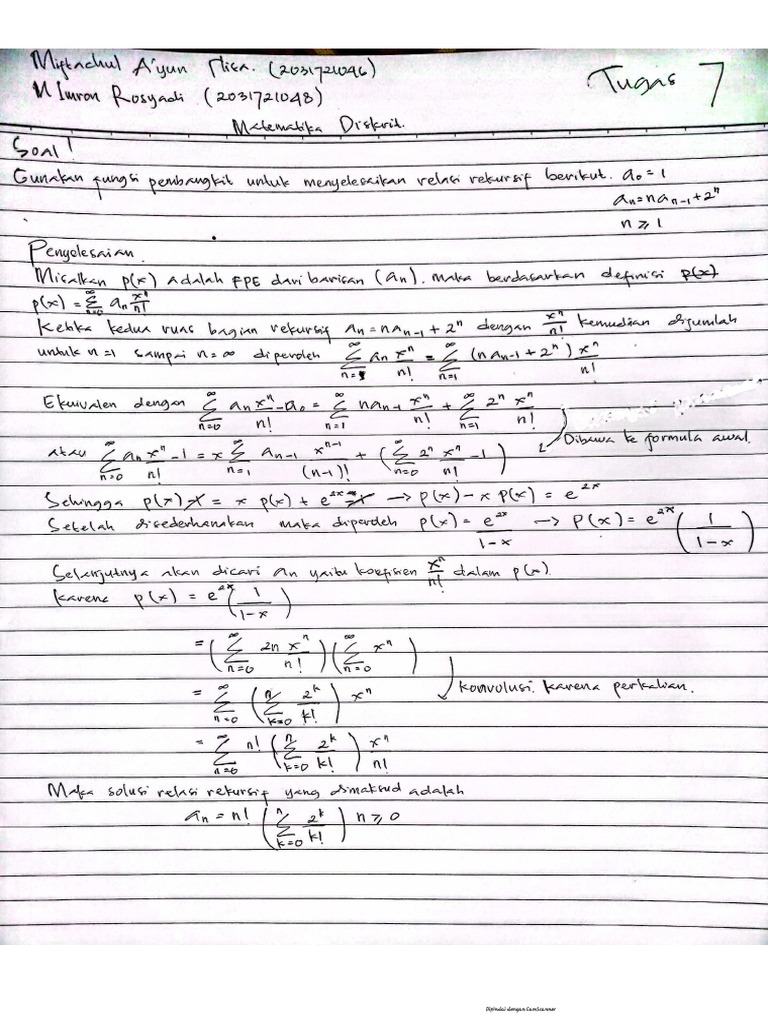 Miftachul A'yun Nisa. (2031721046)
M Imron Rosyadi (2031721048)
Tugas 7
Matematika Diskrit.
Soal!
Gunakan fungsi pembangkit untuk menyelesaikan relasi rekursif berikut. a₀ = 1
aₙ = naₙ₋₁ + 2ⁿ
n ≥ 1
Penyelesaian.
Misalkan p(x) adalah FPE dari barisan (aₙ). Maka berdasarkan definisi p(x)
p(x) = ∑_{n=0}^{∞} aₙ xⁿ/n!
Ketika kedua ruas bagian rekursif aₙ = naₙ₋₁ + 2ⁿ dengan xⁿ/n! kemudian dijumlah
untuk n=1 sampai n=∞ diperoleh ∑_{n=1}^{∞} aₙ xⁿ/n! = ∑_{n=1}^{∞} (naₙ₋₁ + 2ⁿ) xⁿ/n!
Ekuivalen dengan ∑_{n=0}^{∞} aₙ xⁿ/n! - a₀ = ∑_{n=1}^{∞} naₙ₋₁ xⁿ/n! + ∑_{n=1}^{∞} 2ⁿ xⁿ/n!
Dibawa ke formula awal.
atau ∑_{n=0}^{∞} aₙ xⁿ/n! - 1 = x ∑_{n=1}^{∞} aₙ₋₁ xⁿ⁻¹/(n-1)! + (∑_{n=0}^{∞} 2ⁿ xⁿ/n! - 1)
Sehingga p(x) - 1 = x p(x) + e²ˣ - 1 → p(x) - x p(x) = e²ˣ
Setelah disederhanakan maka diperoleh p(x) = e²ˣ/(1-x) → P(x) = e²ˣ (1/(1-x))
Selanjutnya akan dicari aₙ yaitu koefisien xⁿ/n! dalam p(x).
Karena p(x) = e²ˣ (1/(1-x))
= (∑_{n=0}^{∞} 2n xⁿ/n!) (∑_{n=0}^{∞} xⁿ)
Konvolusi. Karena perkalian.
= ∑_{n=0}^{∞} (∑_{k=0}^{n} 2ᵏ/k!) xⁿ
= ∑_{n=0}^{∞} n! (∑_{k=0}^{n} 2ᵏ/k!) xⁿ/n!
Maka solusi relasi rekursif yang dimaksud adalah
aₙ = n! (∑_{k=0}^{n} 2ᵏ/k!) n ≥ 0
Dipindai dengan CamScanner